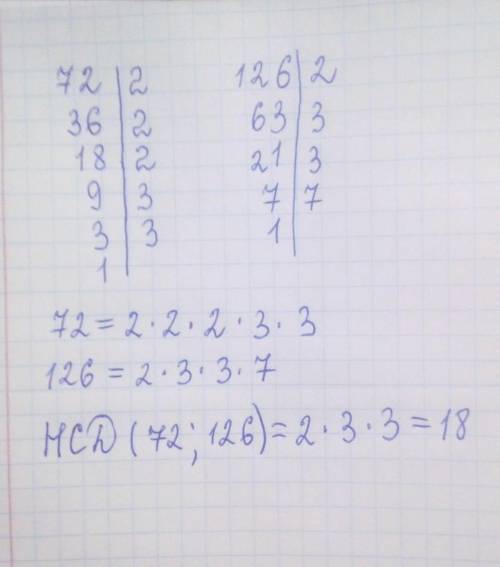 72 | 2 126 | 2
36 | 2 63 | 3
18 | 2 21 | 3
9 | 3 7 | 7
3 | 3 1 |
1 |
72 = 2 · 2 · 2 · 3 · 3
126 = 2 · 3 · 3 · 7
НСД (72; 126) = 2 · 3 · 3 = 18